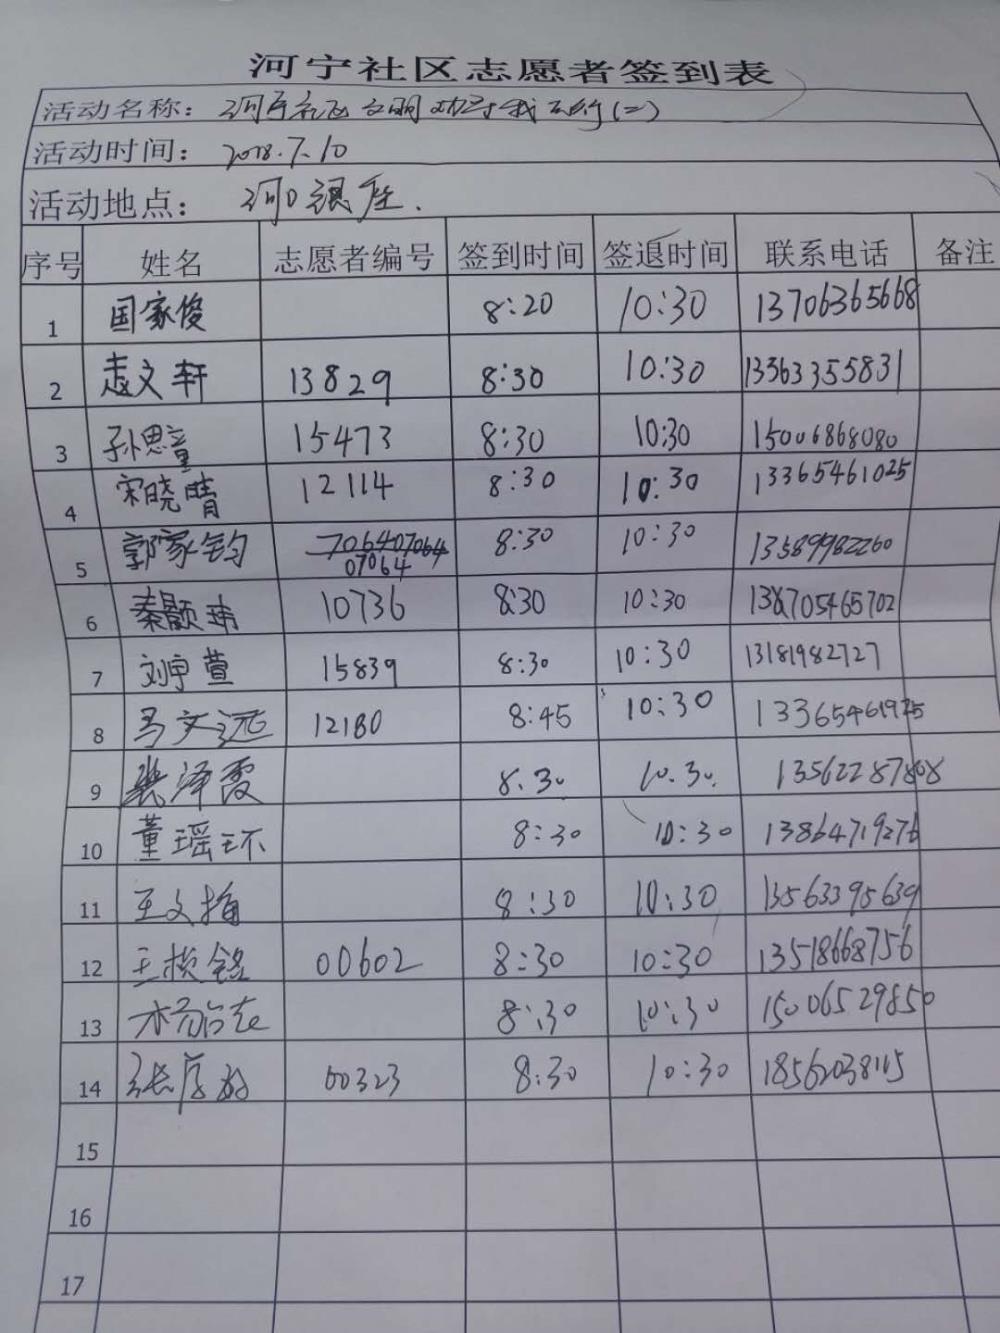 河宁社区志愿者签到表
活动名称：河宁社区文明劝导我先行(二)
活动时间：2018.7.10
活动地点：河口银座.
序号 姓名 志愿者编号 签到时间 签退时间 联系电话 备注
1 国家俊 8:20 10:30 13706365668
2 赵文轩 13829 8:30 10:30 13563355831
3 孙思童 15473 8:30 10:30 15006868080
4 宋晓晴 12114 8:30 10:30 13365461025
5 郭家钧 07064 8:30 10:30 13589982260
6 秦颢玮 10736 8:30 10:30
7 刘宇萱 15839 8:30 10:30 13181982727
8 马文远 12180 8:45 10:30
9 泽霞 8.30 10.30.
10 董瑶环 8:30 10:30 13864719276
11 王文 8:30 10:30 13563395639
12 王 00602 8:30 10:30 13518668756
13 8:30 10:30 15006529850
14 张 00323 8:30 10:30 18562038115
15
16
17